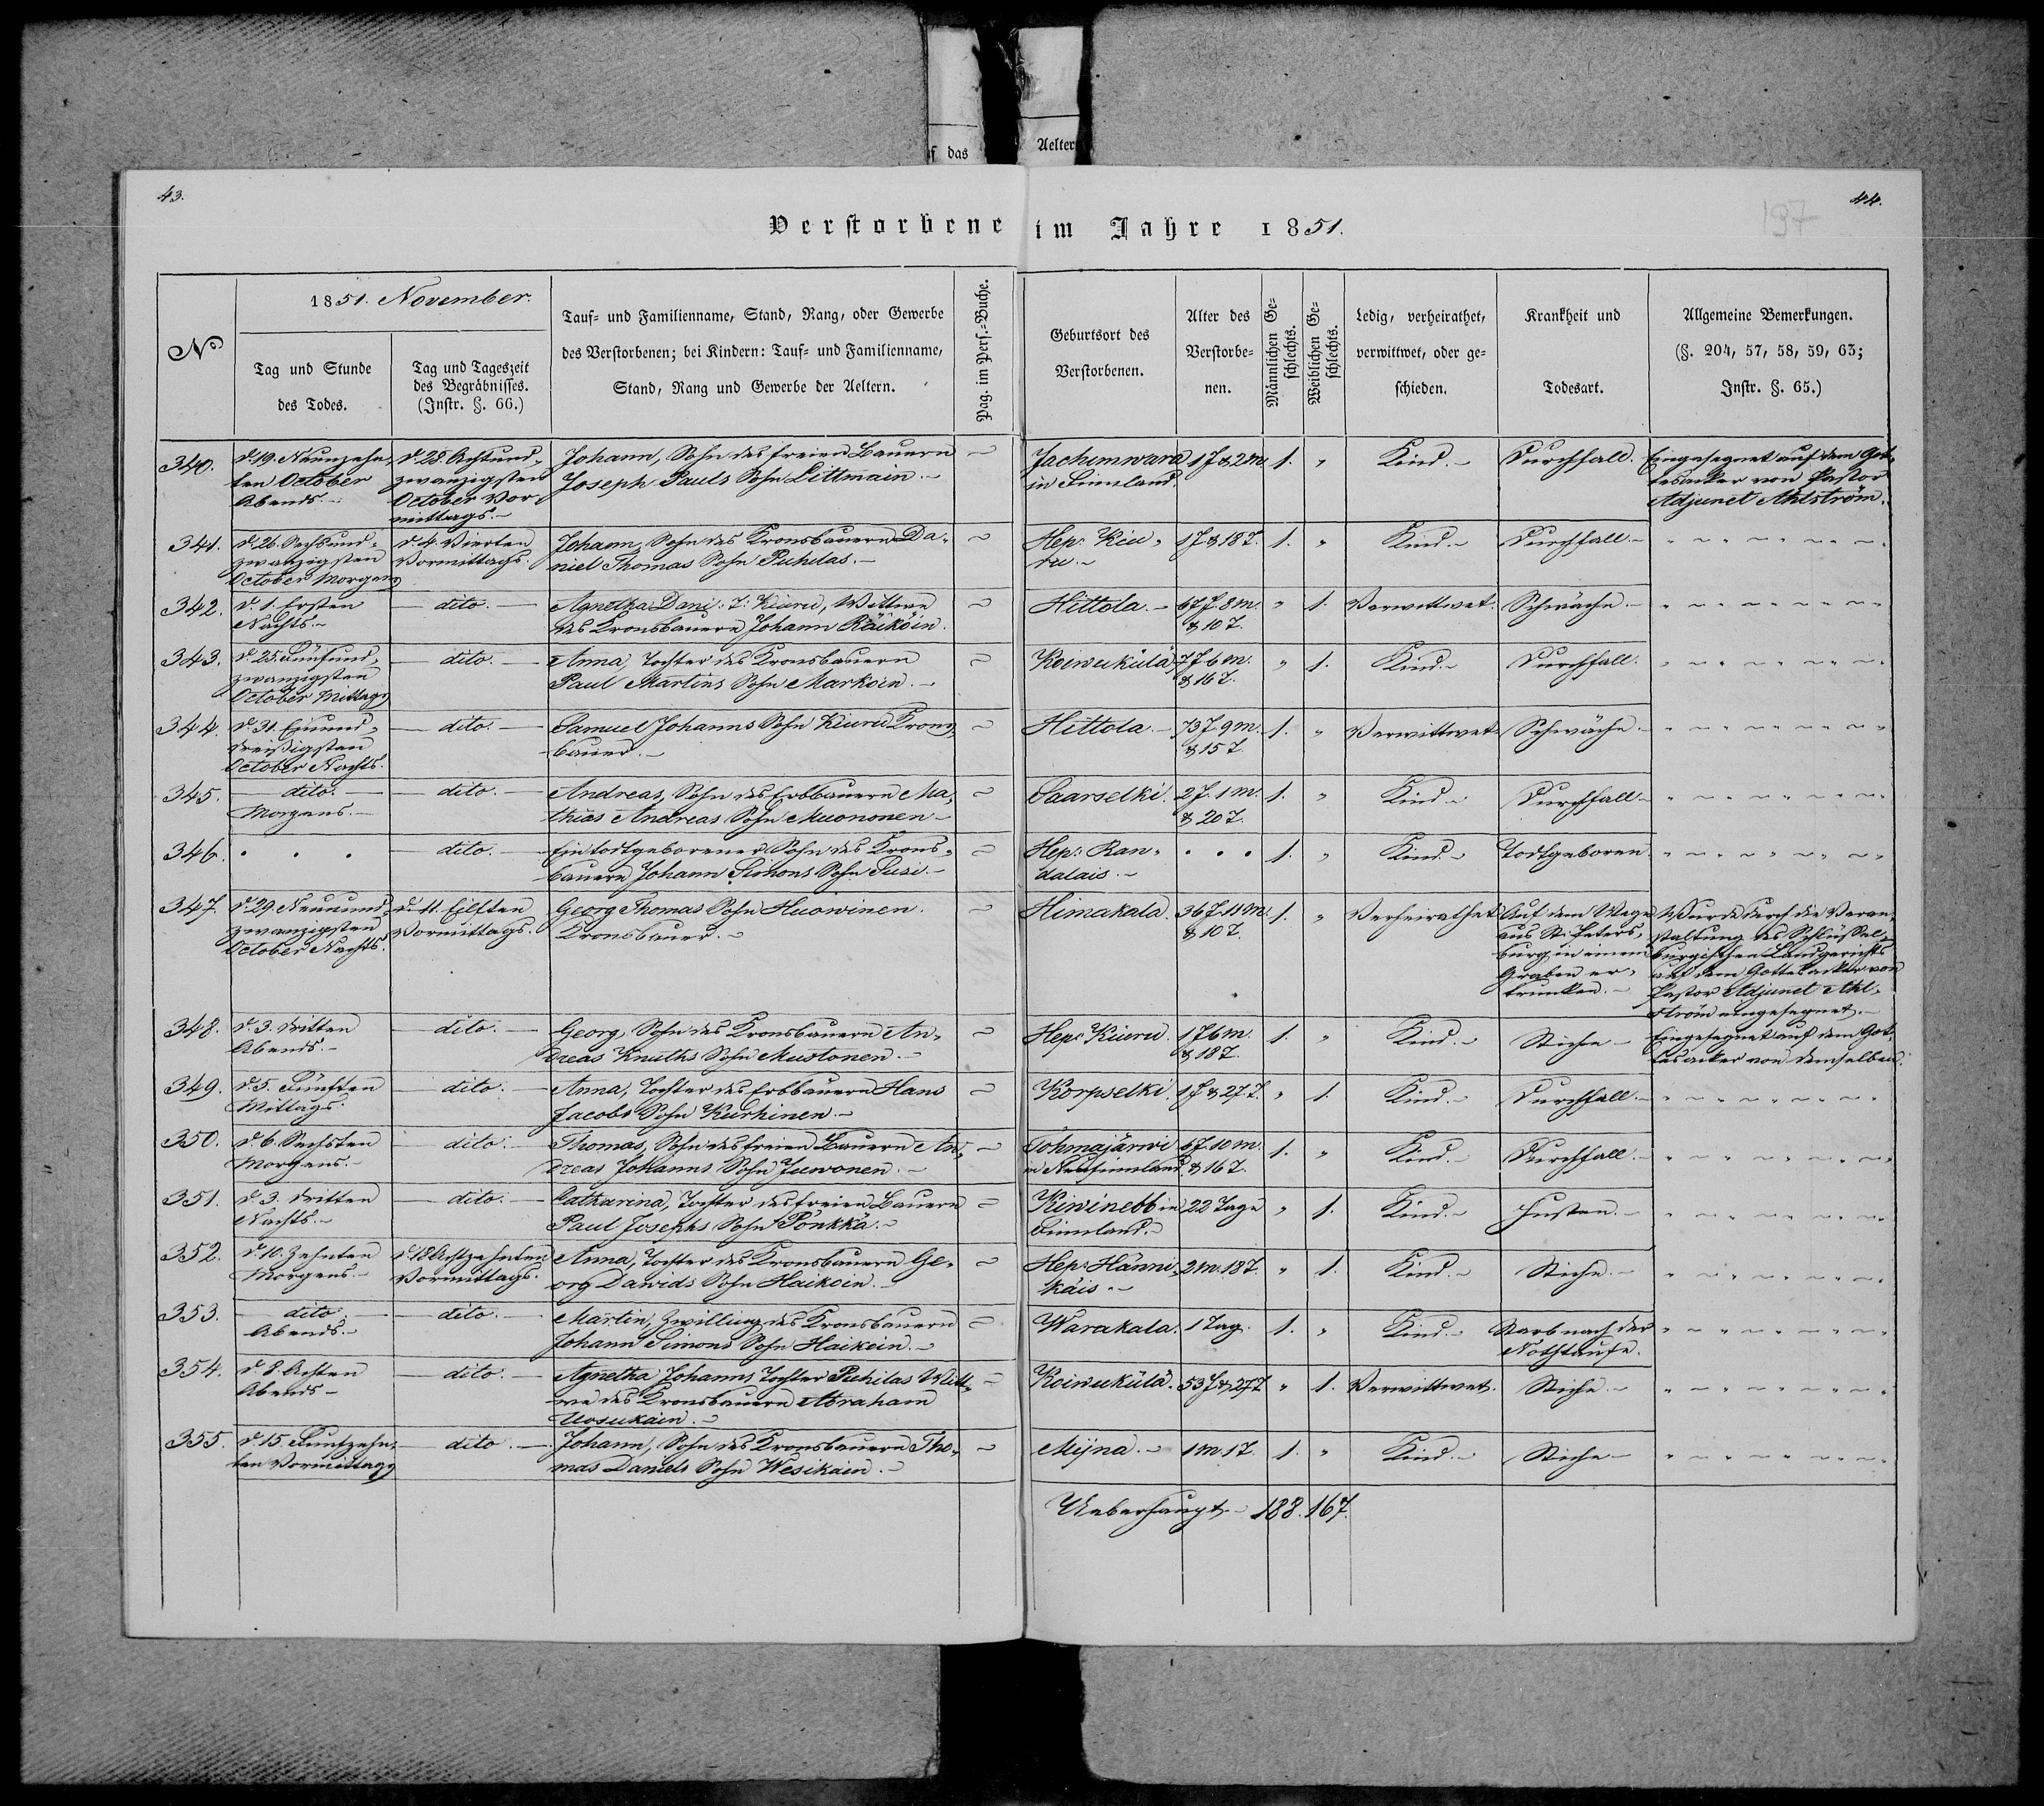 f das
Aelter
43.
44.
197
Verstorbene im Jahre 1851.
N°
1851. November.
Tag und Stunde
des Todes.
Tag und Tageszeit
des Begräbnisses.
(Instr. §. 66.)
Tauf- und Familienname, Stand, Rang, oder Gewerbe
des Verstorbenen; bei Kindern: Tauf- und Familienname,
Stand, Rang und Gewerbe der Aeltern.
Pag. im Pers.-Buche.
Geburtsort des
Verstorbenen.
Alter des
Verstorbe-
nen.
Männlichen Ge-
schlechts.
Weiblichen Ge-
schlechts.
Ledig, verheirathet,
verwittwet, oder ge-
schieden.
Krankheit und
Todesart.
Allgemeine Bemerkungen.
(§. 204, 57, 58, 59, 63;
Instr. §. 65.)
340.
d. 19. Neunzehn-
ten October
Abends.
d. 28. Achtund-
zwanzigsten
October Vor-
mittags.
Johann, Sohn des freien Bauern
Joseph Pauls Sohn Littmain.
Jachimwara
in Finnland.
1 J. & 2 m.
1. "
Kind.
Durchfall.
Eingesegnet auf dem Got-
tesacker von Pastor
Adjunct Ahlström.
341.
d. 26. Sechsund-
zwanzigsten
October Morgens
d. 4. Vierten
Vormittags.
Johann, Sohn des Kronsbauern Da-
niel Thomas Sohn Puhilas.
Hep: Kiu-
ru.
1 J. & 18 T.
1. "
Kind.
Durchfall.
342.
d. 1. Ersten
Nachts.
dito.
Agnetha Dani: T: Kiuru, Wittwe
des Kronsbauern Johann Räiköin.
Hittola.
67 J. 8 m.
& 10 T.
" 1.
Verwittwet.
Schwäche.
343.
d. 25. Fünfund-
zwanzigsten
October Mittags
dito.
Anna, Tochter des Kronsbauern
Paul Martins Sohn Markoin.
Koiwukülä
7 J. 6 m.
& 16 T.
" 1.
Kind.
Durchfall.
344.
d. 31. Einund-
dreißigsten
October Nachts.
dito.
Samuel Johanns Sohn Kiuru Krons-
bauer.
Hittola.
73 J. 9 m.
& 15 T.
1. "
Verwittwet.
Schwäche.
345.
dito.
Morgens.
dito.
Andreas, Sohn des Erbbauern Ma-
thias Andreas Sohn Muononen.
Saarselki.
2 J. 1 m.
& 20 T.
1. "
Kind.
Durchfall.
346.
. . .
dito.
Ein todtgeborener Sohn des Krons-
bauern Johann Simons Sohn Susi.
Hep: Ran-
dalais.
. . .
1. "
Kind.
Todtgeboren.
347.
d. 29. Neunund-
zwanzigsten
October Nachts.
d. 11. Eilften
Vormittags.
Georg Thomas Sohn Huowinen.
Kronsbauer.
Himakala.
36 J. 11 m.
& 10 T.
1. "
Verheirathet
Auf dem Wege
aus St. Peters-
burg in einem
Graben er-
trunken.
Wurde durch die Veran-
staltung des Schlüssel-
burgischen Landgerichts
auf dem Gottesacker von
Pastor Adjunct Ahl-
ström eingesegnet.
348.
d. 3. Dritten
Abends.
dito.
Georg, Sohn des Kronsbauern An-
dreas Knuths Sohn Mustonen.
Hep: Kiuru.
1 J. 6 m.
& 18 T.
1. "
Kind.
Stiche
Eingesegnet auf dem Got-
tesacker von demselben.
349.
d. 5. Fünften
Mittags.
dito.
Anna, Tochter des Erbbauern Hans
Jacobs Sohn Kurkinen.
Korpselki.
1 J. & 27 T.
" 1.
Kind.
Durchfall.
350.
d. 6. Sechsten
Morgens.
dito.
Thomas, Sohn des freien Bauern An-
dreas Johanns Sohn Juwonen.
Tohmajärwi
in Neufinnland.
6 J. 10 m.
& 16 T.
1. "
Kind.
Durchfall.
351.
d. 3. Dritten
Nachts.
dito.
Catharina, Tochter des freien Bauern
Paul Josephs Sohn Pönkkä.
Kiwinebb in
Finnland.
22 Tage
" 1.
Kind.
Husten.
352.
d. 10. Zehnten
Morgens.
d. 18 Achtzehnten
Vormittags.
Anna, Tochter des Kronsbauern Ge-
org Dawids Sohn Haikoin.
Hep: Hänni-
käis.
2 m. 18 T.
" 1.
Kind.
Stiche.
353.
dito.
Abends.
dito.
Martin, Zwilling des Kronsbauern
Johann Simons Sohn Haikoin.
Warakala.
1 Tag.
1. "
Kind.
Starb nach der
Nothtaufe.
354.
d. 8. Achten
Abends
dito.
Agnetha Johanns Tochter Puhilas Witt-
we des Kronsbauern Abraham
Uosukain.
Koiwukülä.
53 J. & 27 T.
" 1.
Verwittwet.
Stiche
355.
d. 15. Funfzehn-
ten Vormittags
dito.
Johann, Sohn des Kronsbauern Tho-
mas Daniels Sohn Wesikäin.
Mijna.
1 m. 1 T.
1. "
Kind.
Stiche
Ueberhaupt 188. 167.